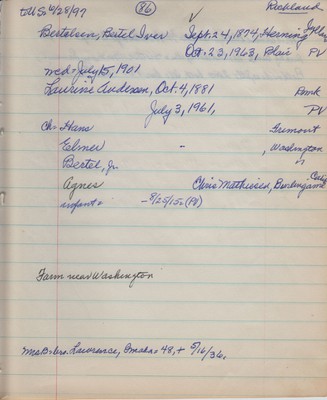 to U.S. 4/28/97 (86) Richland
Bertelsen, Bertel Iver Sept. 24, 1874, Herning, Jylland
Oct. 23, 1963, Blair PV
med - July 15, 1901
Laurine Anderson, Oct. 4, 1881 Dmk
July 3, 1961, PV
Ch: Hans Fremont
Elmer - , Washington
Bertel, Jr. "
Agnes Chris Mathiesen, Burlingame Calif
infant = - 8/25/15 = (PV)
Farm near Washington
Mrs B = bro. Lawrence, Omaha = 48, + 5/16/36,